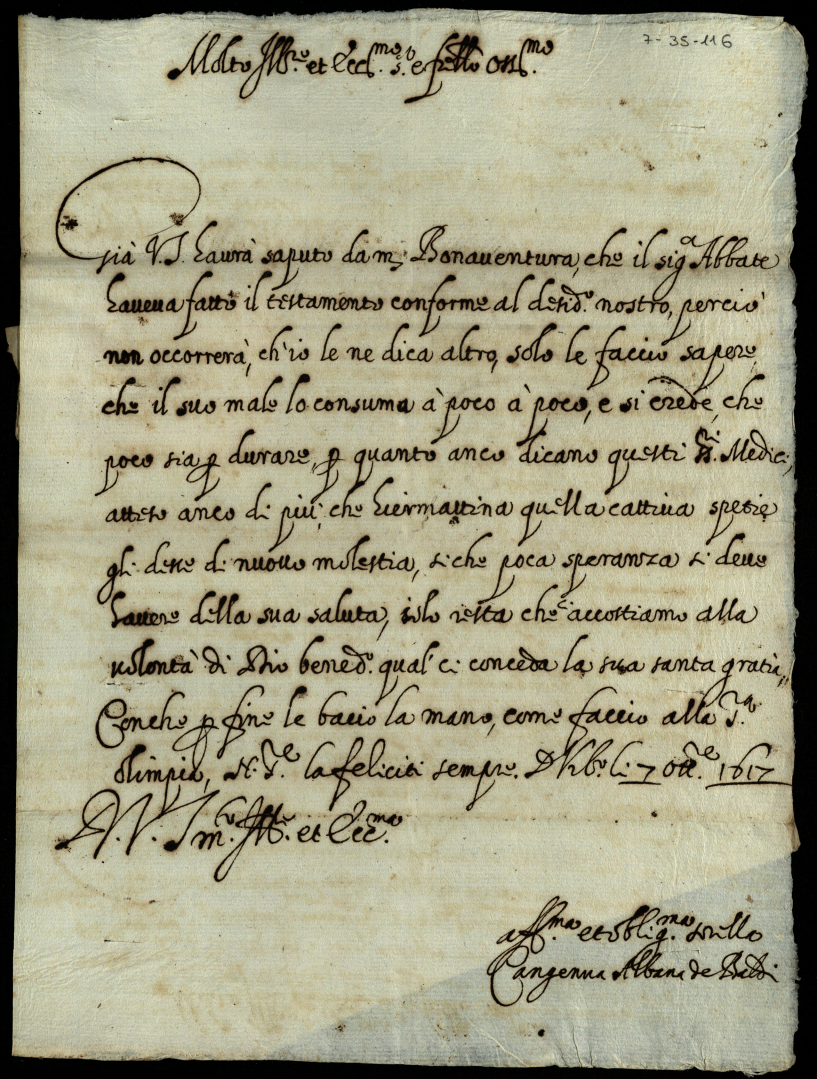 7-35-116
Molto Ill.re et Ecc.mo s.r e frello oss.mo
Già V.S. haurà saputo da m. Bonauentura, che il sig.r Abbate
haueua fatto il testamento conforme al desid.o nostro, perciò
non occorrerà, ch'io le ne dica altro, solo le faccio sapere,
che il suo male lo consuma à poco à poco, e si crede, che
poco sia p durare, p quanto anco dicano questi ss.ri Medici,
atteso anco di più, che hiermattina quella cattiua spetie
gli dette di nuouo molestia, si che poca speranza si deue
hauere della sua saluta, solo resta che c'accostiamo alla
volontà di Dio bened.o qual ci conceda la sua santa gratia,
Conche p fine le bacio la mano, come faccio alla S.ra
Olimpia, N. S.re la feliciti sempre. D Vrb.o li 7 Ott.re 1617
D. V. S. m.to Ill.re et Ecc.ma
aff.ma et oblig.ma sorella
Albana de